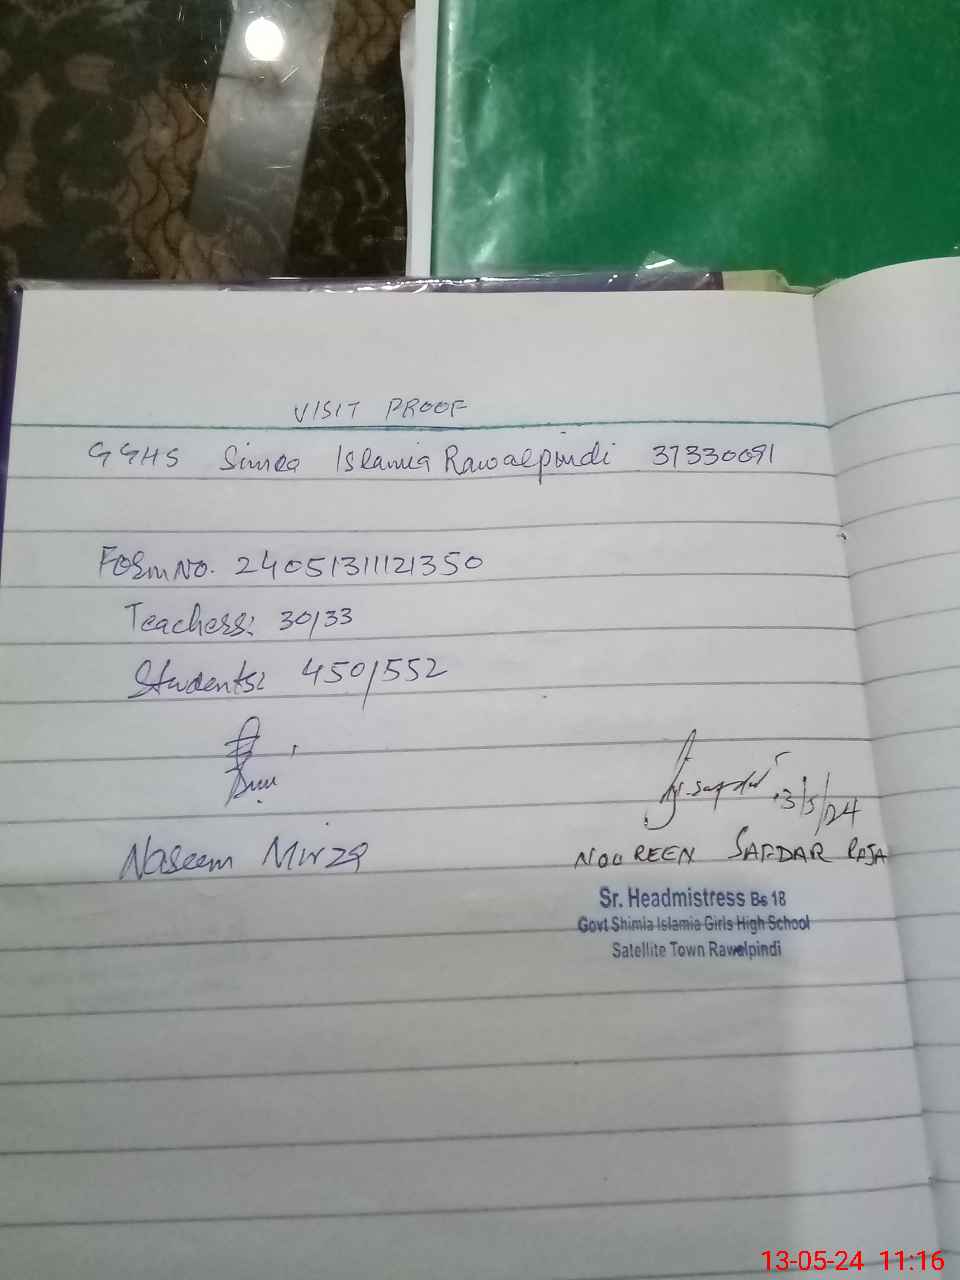 VISIT PROOF
GGHS Simla Islamia Rawalpindi 37330091
Form No. 24051311121350
Teachers: 30/33
Students: 450/552
13/5/24
Naseem Mirza
NOUREEN SAFDAR RAJA
Sr. Headmistress Bs 18
Govt Shimla Islamia Girls High School
Satellite Town Rawalpindi
13-05-24 11:16